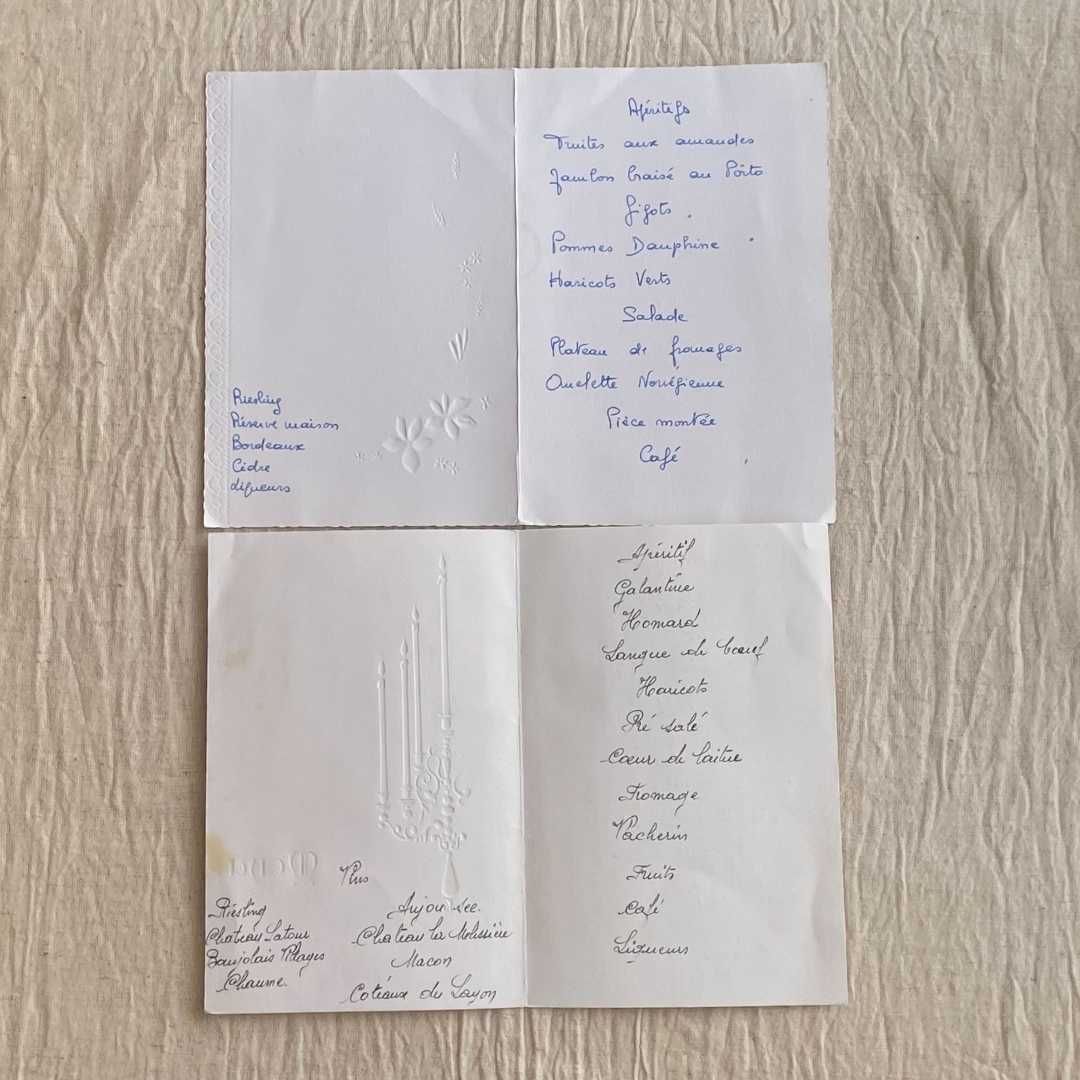 Apéritifs
Truites aux amandes
Jambon braisé au Porto
Gigots
Pommes Dauphine
Haricots Verts
Salade
Plateau de fromages
Omelette Norvégienne
Pièce montée
Café
Riesling
Réserve maison
Bordeaux
Cidre
liqueurs
Apéritif
Galantine
Homard
Langue de boeuf
Haricots
Pré salé
Coeur de laitue
Fromage
Vacherin
Fruits
Café
Liqueurs
Menu
Vins
Riesling
Chateau Latour
Baujolais Villages
Chaume
Anjou sec.
Chateau la
Macon
Coteaux du Layon